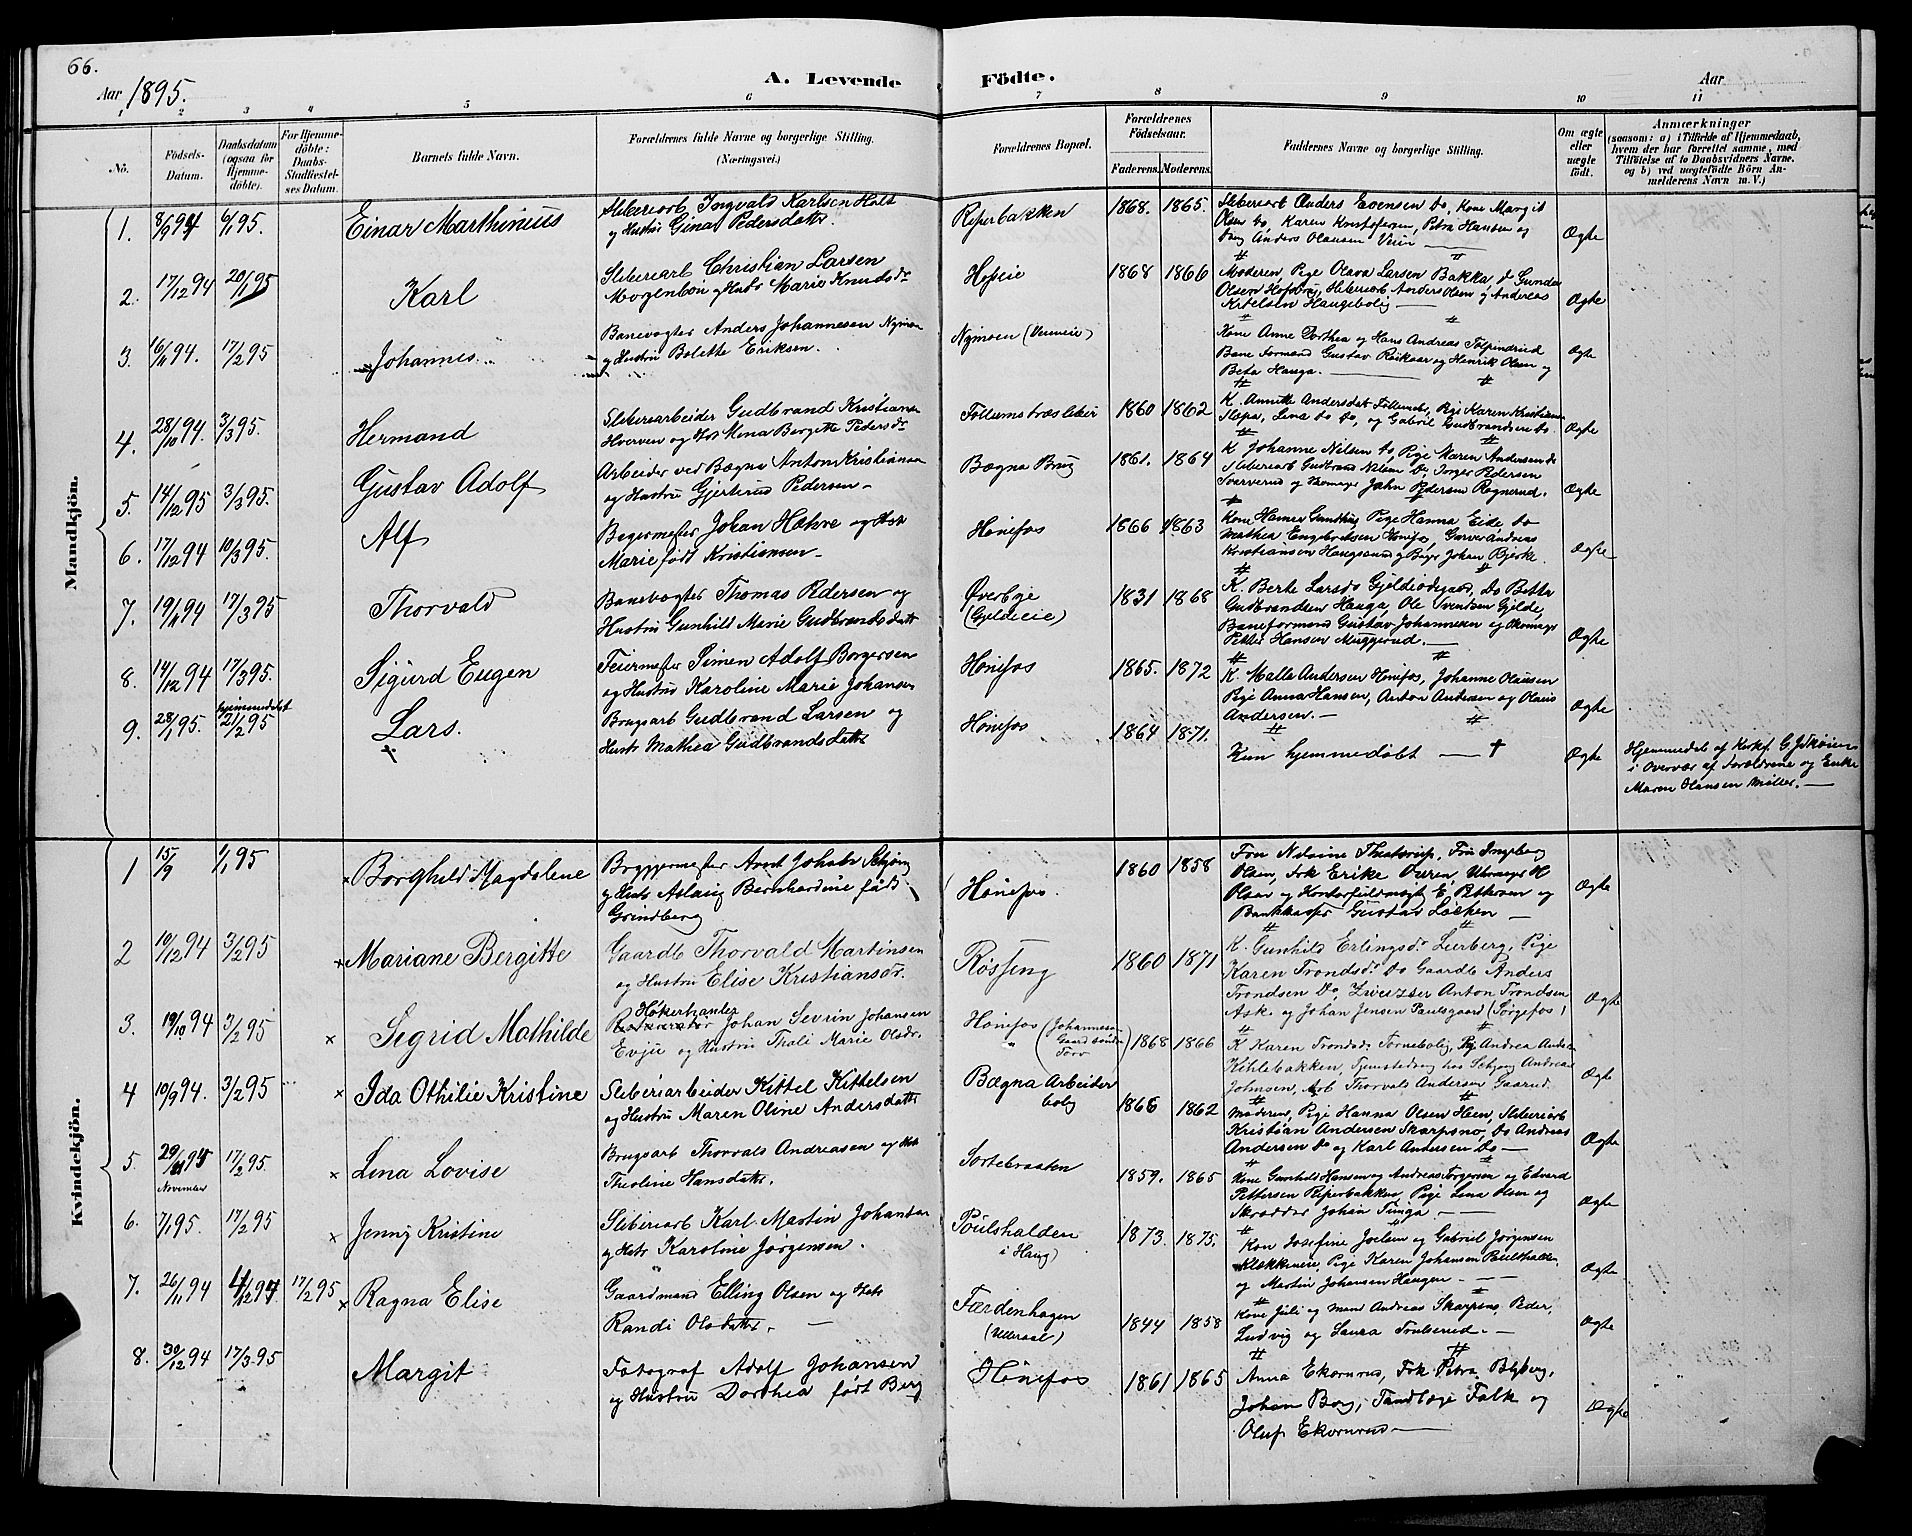 66.
Aar 1895.
A. Levende Födte.
Aar
1 2 3 4 5 6 7 8 9 10 11
No.
Födsels-Datum.
Daabsdatum (ogsaa for Hjemme-döbte).
For Hjemme-döbte: Daabs-Stadfæstel-ses Datum.
Barnets fulde Navn.
Forældrenes fulde Navne og borgerlige Stilling.
(Næringsvei.)
Forældrenes Bopæl.
Forældrenes Födselsaar.
Faderens. Moderens.
Faddernes Navne og borgerlige Stilling.
Om ægte eller uægte födt.
Anmærkninger
(saasom: a) i Tilfælde af Hjemmedaab,
hvem der har forrettet samme, med
Tilföielse af to Daabsvidners Navne.
og b) ved uægtefödte Börn An-
melderens Navn m. V.)
Mandkjön.
1. 8/9 94 6/1 95. Einar Marthinius
Sliberiarb Ingvald Karlsen Holt
og Hustru Gina Pedersdatter.
Reperbakken 1868. 1865.
Sliberiarb Anders Evensen Do, Kone Margit
Olsen Do, Karen Kristofersen, Petra Hansen og
Ung Anders Olausen Veien
Ægte
2. 17/12 94 20/1 95 Karl
Sliberiarb Christian Larsen
og Hustr Marie Knudsdr
1868 1866
Moderen, Pige Olava Larsen Bakka, do Gunda
Olsen Hofsbro, Sliberiarb Anders Olsen og Andreas
Kittelsen Haugebolig
Ægte
3. 16/11 94. 17/2 95 Johannes.
Banevogter Anders Johannesen Nymoen
og Hustru Bolette Eriksen.
Nymoen (Vemeie)
Kone Anne Dorthea og Hans Andreas Tolpinrud
Bane formand Gustav og Henrik Olsen og
Beta Hauga.
Ægte
4. 28/10 94. 3/3 95. Hermand
Sliberiarbeider Gudbrand Kristiansen
Hverven og Hos Mina Bergitte Pedersdr
Follums træsliberi 1860 1862
K. Annette Andersdat Follums, Pige Karen Kristiansen
Lina Do Do, og Gabriel Gudbrandsen Do.
Ægte
5. 14/12 95 3/3 95. Gustav Adolf
Arbeider ved Bægna Anton Kristiansen
og Hustru Gjertrud Pedersen
Bægna Brug 1861. 1864
K Johanne Nilsen Do, Pige Maren Andersen do
Sliberiarb Gudbrand Nilsen Do, Jørger Pedersen
Sværverud og Skomager John Pedersen Ragnerud.
Ægte
6. 17/12 94 10/3 95. Alf
Bagermester Johan og Hust
Marie født Kristiansen
Hønefos 1866 1863
Kone Gundhus, Pige Hanna Eide, Do
Mathea Engebretsen Hønefos, Garver Andreas
Kristiansen Haugsund og Bager Johan Bjerke.
Ægte
7. 19/11 94 17/3 95 Thorvald
Banevogter Thomas Pedersen og
Hustru Gunhild Marie Gudbrandsdatter
Øverbye
(Gjeldeeie) 1831 1868
K. Berte Larsdr Gjeldeødegaard, Do Bette
Gudbrandsen Hauga, Ole Svendsen Gjelde,
Baneformand Gustav Johannesen og Skomager
Petter Hansen Muggerud.
Ægte
8. 14/12 94 17/3 95. Sigurd Eugen
Feiermester Simen Adolf Borgersen
og Hustru Karoline Marie Johansen
Hønefos 1865. 1872
K. Malla Andersen Hønefos, Johanne Olausen
Pige Anna Hansen, Anton Andersen og Olaus
Andersen.
Ægte
9. 28/1 95. hjemmedøbt 21/2 95 Lars. †
Brugsarb Gudbrand Larsen og
Hustr Mathea Gudbrandsdatter
Hønefos 1864 1871.
Kun hjemmedøbt — †
Ægte
Hjemmedøbt af Kirkes.
i Overvær af Forældrene og Enke
Maren Olausen Møller.
Kvindekjön.
1 15/9 1/1 95 × Borghild Magdalene
Bryggermester Arnt Johan Schjong
og Hustr Aslaug Bernhardine født
Grindberg
Hønefos. 1860 1858
Fru Nilsine Thrstrup, Fru Ingeborg
Olsen, Frk Erike Ouren, Urmager H
Olsen og Kontorfuldmægt E. Pettersen og
Bankkasser Gustav Løchen
Ægte
2 10/12 94 3/2 95 × Mariane Bergitte
Gaardb Thorvald Martinsen
og Hustru Elise Kristiansdr.
Røsseng 1860 1871
K. Gunhild Erlingsdr Lierberg, Pige
Karen Trondsdr Do Gaardb Anders
Trondsen Do, Anton Trondsen
Ask og Johan Jensen Paulsgaard (Sørgefos)
Ægte
3. 19/10 94 3/2 95 × Sigrid Mathilde
Høkerhandler
Johan Severin Johansen
Evju og Hustru Thale Marie Olsdr.
Hønefos (Johannesen Gaard Søndre Torv) 1868 1866
K Karen Trondsdr Tornebolig, Pig Andrea Andersen
Kihlebakken, Tjenestedreng hos Schjong Andreas
Johnsen, Arb Thorvald Andersen Gaarud.
Ægte
4 10/9 94. 3/2 95 × Ida Othilie Kristine
Sliberiarbeider Kittel Kittelsen
og Hustru Maren Oline Andersdatter
Bægna Arbeider
bolig 1866 1862
Moderen, Pige Hanna Olsen Hen, Sliberiarb
Kristian Andersen Skarpsno, Do Andreas
Andersen Do og Karl Andersen Do
Ægte
5. 29/11 94 November 17/2 95. × Lina Lovise
Brugsarb Thorvald Andreasen og Hust
Theoline Hansdatter.
Sortebraaten 1859. 1865
Kone Gunhild Hansen og Andreas Torgersen og Edvard
Pettersen Reperbakken, Pige Lina Olsen og
Skrædder Johan Tunga
Ægte
6. 7/1 95. 17/2 95 × Jenny Kristine
Sliberiarb Karl Martin Johansen
og Hustr Karoline Jørgensen.
Poulshalden
i Haug) 1873. 1875.
Kon Josefine Joelsen og Gabriel Jørgensen
Klækkeneie, Pige Karen Johansen Poulshalden
og Martin Johansen Haugen
Ægte
7. 26/11 94 4/12 94 17/2 95 × Ragna Elise
Gaardmand Elling Olsen og Hust
Randi Olsdatter.
Færdenhagen
(Ulleraal) 1844 1858
Kone Juli og mand Andreas Skarpsno, Peder,
Ludvig og Laura Trulserud.
Ægte
8. 30/12 94 17/3 95 Margit
Fotograf Adolf Johansen
og Hustru Dorthea født Berg
Hønefos 1861 1865
Anna Ekornrud, Frk Petra Blyberg,
Johan Borg, Tandlæge Falk og
Oluf Ekornrud
Ægte